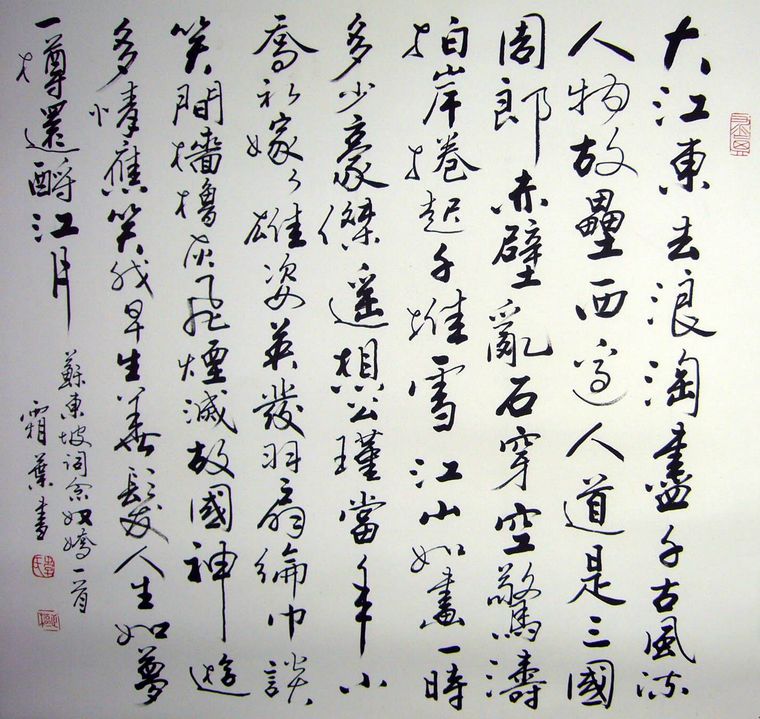 大江東去浪淘盡千古風流
人物故壘西邊人道是三國
周郎赤壁亂石穿空驚濤
拍岸捲起千堆雪江山如畫一時
多少豪傑遥想公瑾當年小
喬初嫁了雄姿英發羽扇綸巾談
笑間檣櫓灰飛煙滅故國神遊
多情應笑我早生華髮人生如夢
一樽還酹江月
蘇東坡詞念奴嬌一首
霜葉書